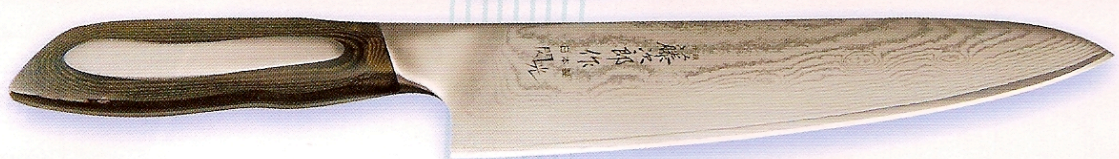 藤次郎作
日本製